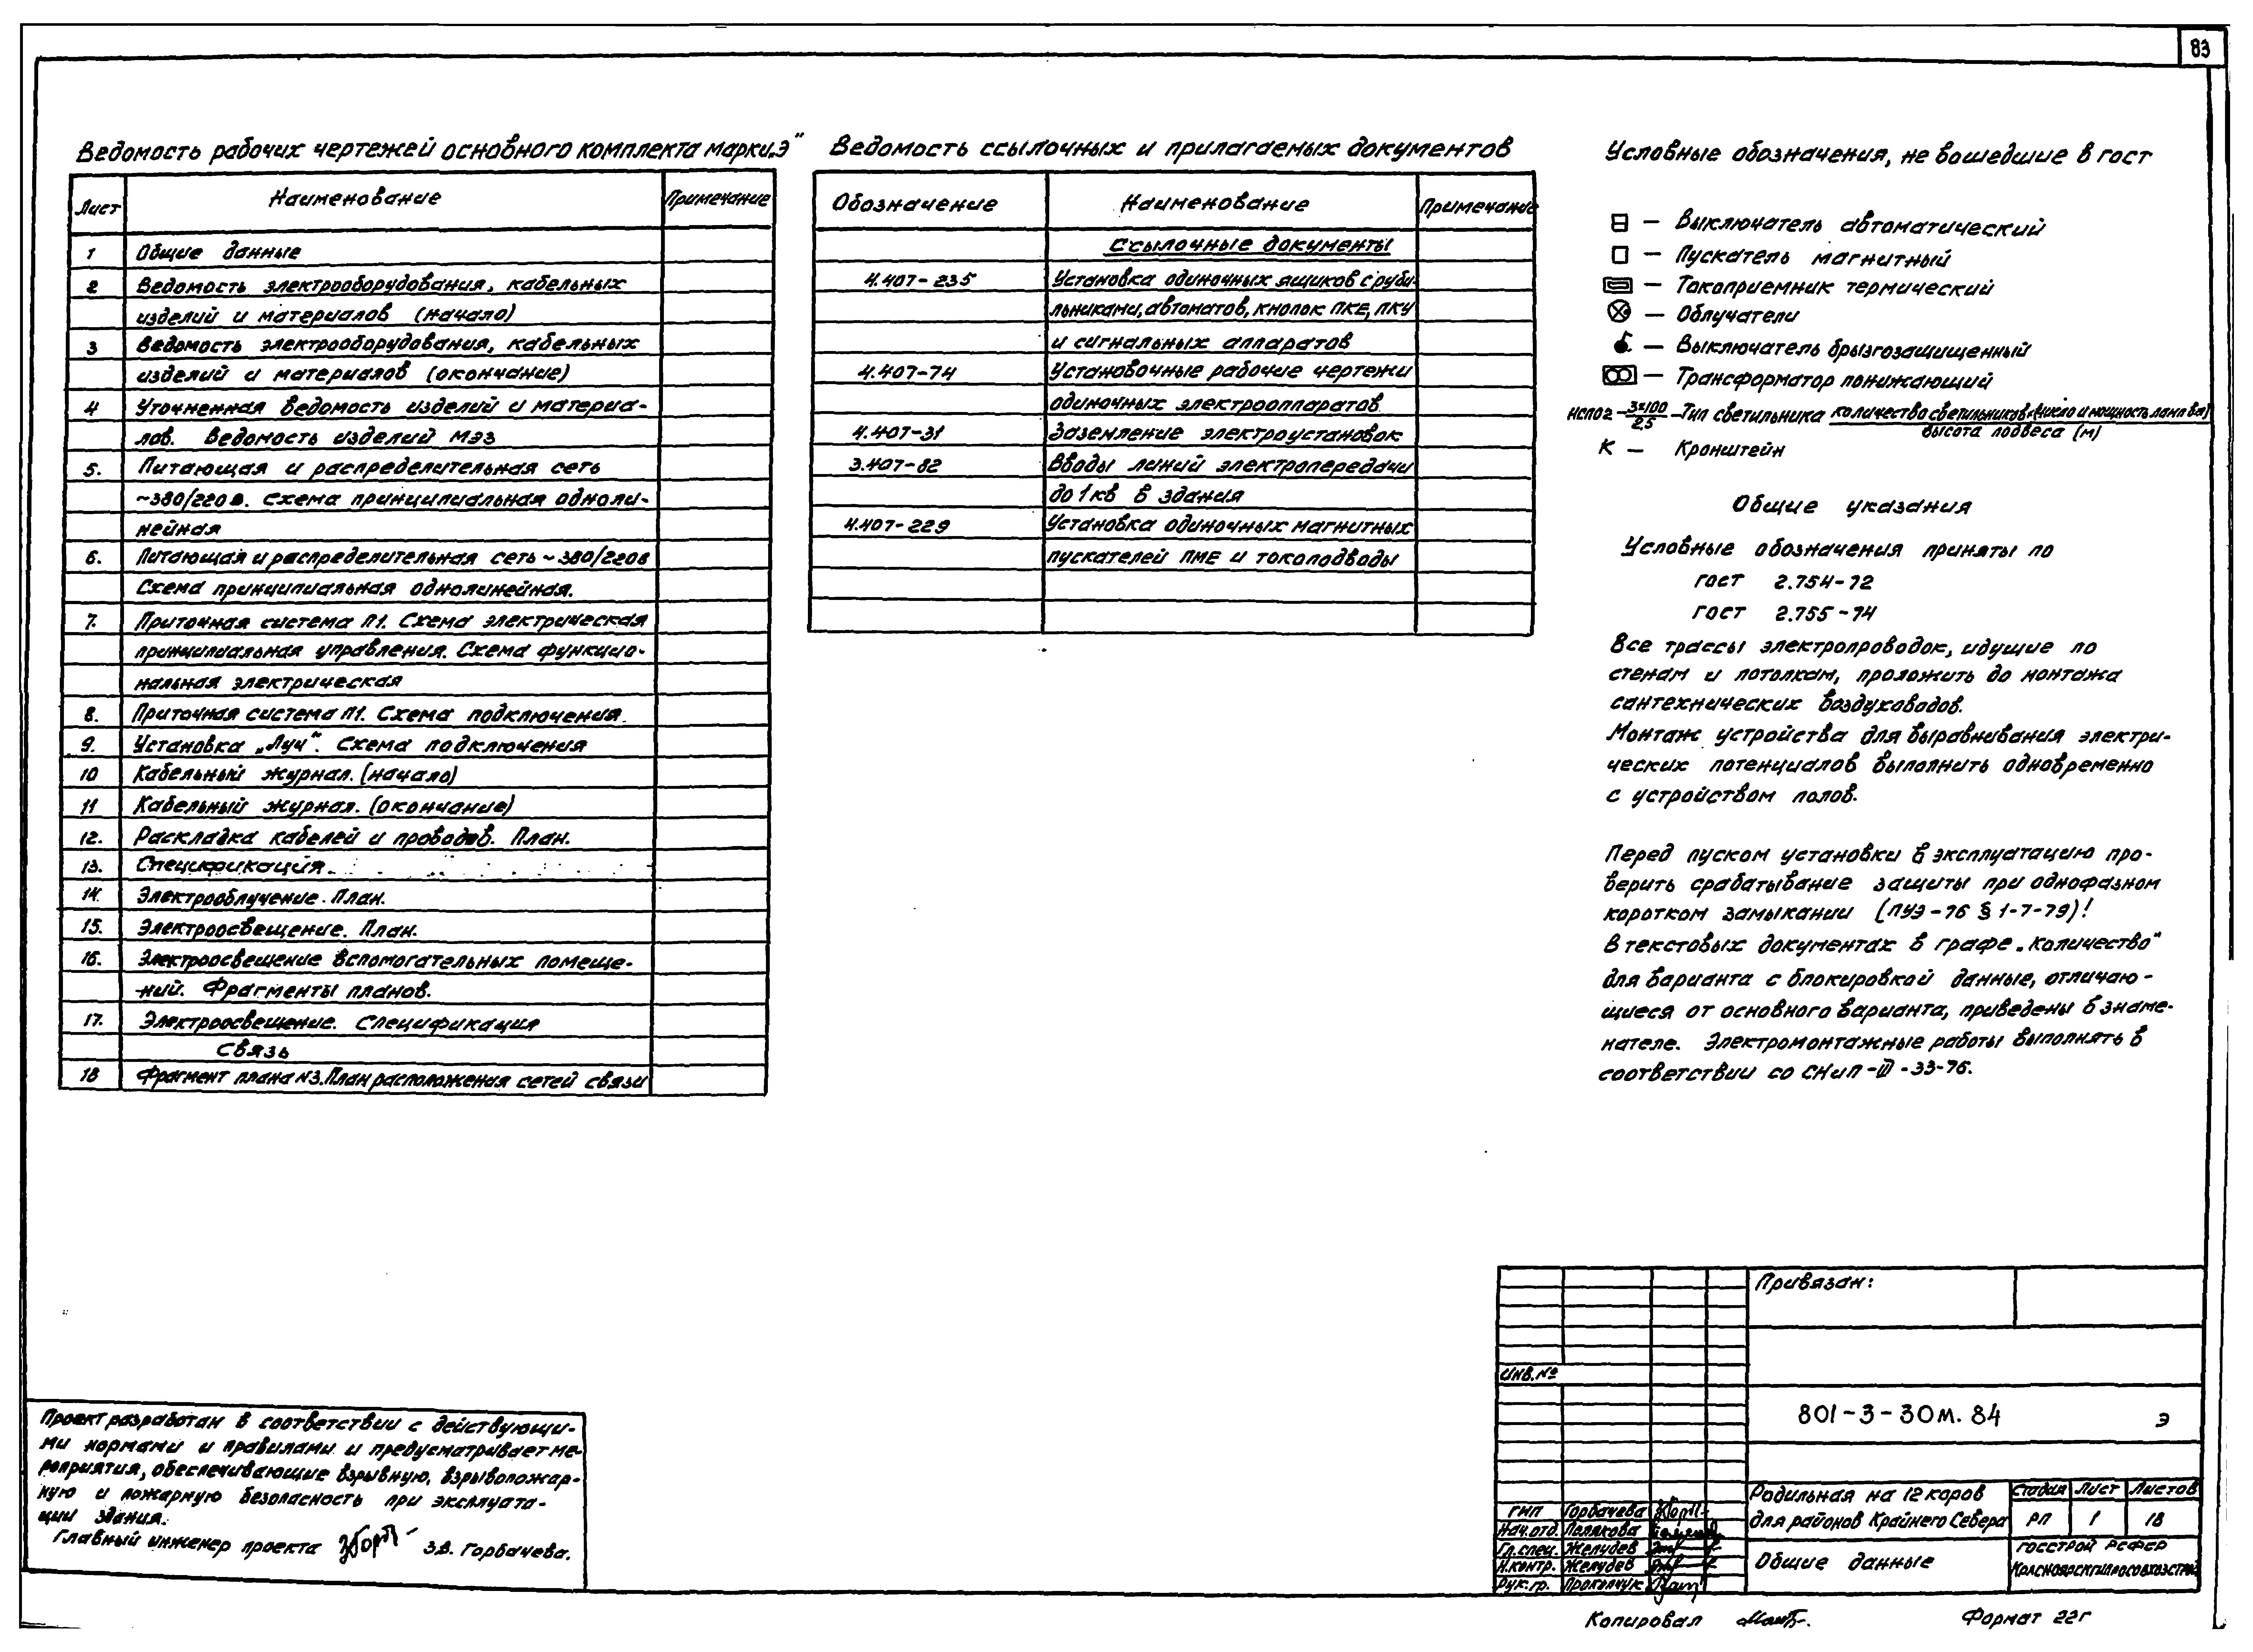 83
Ведомость рабочих чертежей основного комплекта марки „Э"
Лист Наименование Примечание
1 Общие данные
2 Ведомость электрооборудования, кабельных
изделий и материалов (начало)
3 Ведомость электрооборудования, кабельных
изделий и материалов (окончание)
4 Уточненная ведомость изделий и материа-
лов. Ведомость изделий МЭЗ
5. Питающая и распределительная сеть
~380/220в. Схема принципиальная одноли-
нейная
6. Питающая и распределительная сеть ~380/220в
Схема принципиальная однолинейная.
7. Приточная система П1. Схема электрическая
принципиальная управления. Схема функцио-
нальная электрическая
8. Приточная система П1. Схема подключения
9. Установка „Луч". Схема подключения
10 Кабельный журнал. (начало)
11 Кабельный журнал. (окончание)
12. Раскладка кабелей и проводов. План.
13. Спецификация.
14. Электрооблучение. План.
15. Электроосвещение. План.
16. Электроосвещение вспомогательных помеще-
ний. Фрагменты планов.
17. Электроосвещение. Спецификация
Связь
18 Фрагмент плана N3. План расположения сетей связи
Ведомость ссылочных и прилагаемых документов
Обозначение Наименование Примечание
Ссылочные документы
4.407-235 Установка одиночных ящиков с руби-
льниками, автоматов, кнопок ПКЕ, ПКУ
и сигнальных аппаратов
4.407-74 Установочные рабочие чертежи
одиночных электроаппаратов
4.407-31 Заземление электроустановок
3.407-82 Вводы линий электропередачи
до 1 кв в здания
4.407-229 Установка одиночных магнитных
пускателей ПМЕ и токоподводы
Условные обозначения, не вошедшие в гост
— Выключатель автоматический
— Пускатель магнитный
— Токоприемник термический
— Облучатели
— Выключатель брызгозащищенный
— Трансформатор понижающий
НСП02 - 3×100/2,5 - Тип светильника количество светильников×(число и мощность ламп Вт)/высота подвеса (м)
К — Кронштейн
Общие указания
Условные обозначения приняты по
гост 2.754-72
гост 2.755-74
Все трассы электропроводок, идущие по
стенам и потолкам, проложить до монтажа
сантехнических воздуховодов.
Монтаж устройства для выравнивания электри-
ческих потенциалов выполнить одновременно
с устройством полов.
Перед пуском установки в эксплуатацию про-
верить срабатывание защиты при однофазном
коротком замыкании (ПУЭ-76 § 1-7-79)!
В текстовых документах в графе „количество"
для варианта с блокировкой данные, отличаю-
щиеся от основного варианта, приведены в знаме-
нателе. Электромонтажные работы выполнять в
соответствии со СНиП-III-33-76.
Проект разработан в соответствии с действующи-
ми нормами и правилами и предусматривает ме-
роприятия, обеспечивающие взрывную, взрывопожар-
ную и пожарную безопасность при эксплуата-
ции здания.
Главный инженер проекта З.В. Горбачева.
Привязан:
Инв.№
801-3-30м.84 Э
ГИП Горбачева
Нач.отд. Полякова
Гл.спец. Желудев
Н.контр. Желудев
Рук.гр. Прокопчук
Родильная на 12 коров
для районов Крайнего Севера
Стадия Лист Листов
РП 1 18
Общие данные
Госстрой РСФСР
Красноярскгипросовхозстрой
Копировал
Формат 22г